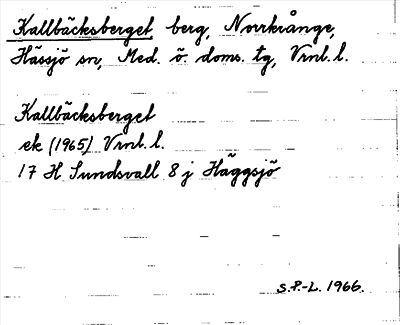 Kallbäcksberget, berg, Norrkrånge,
Hässjö sn, Med. ö. doms. tg, Vrnl. l.
Kallbäcksberget
ek (1965) Vrnl. l.
17 H Sundsvall 8 j Häggsjö
S.P.-L. 1966.